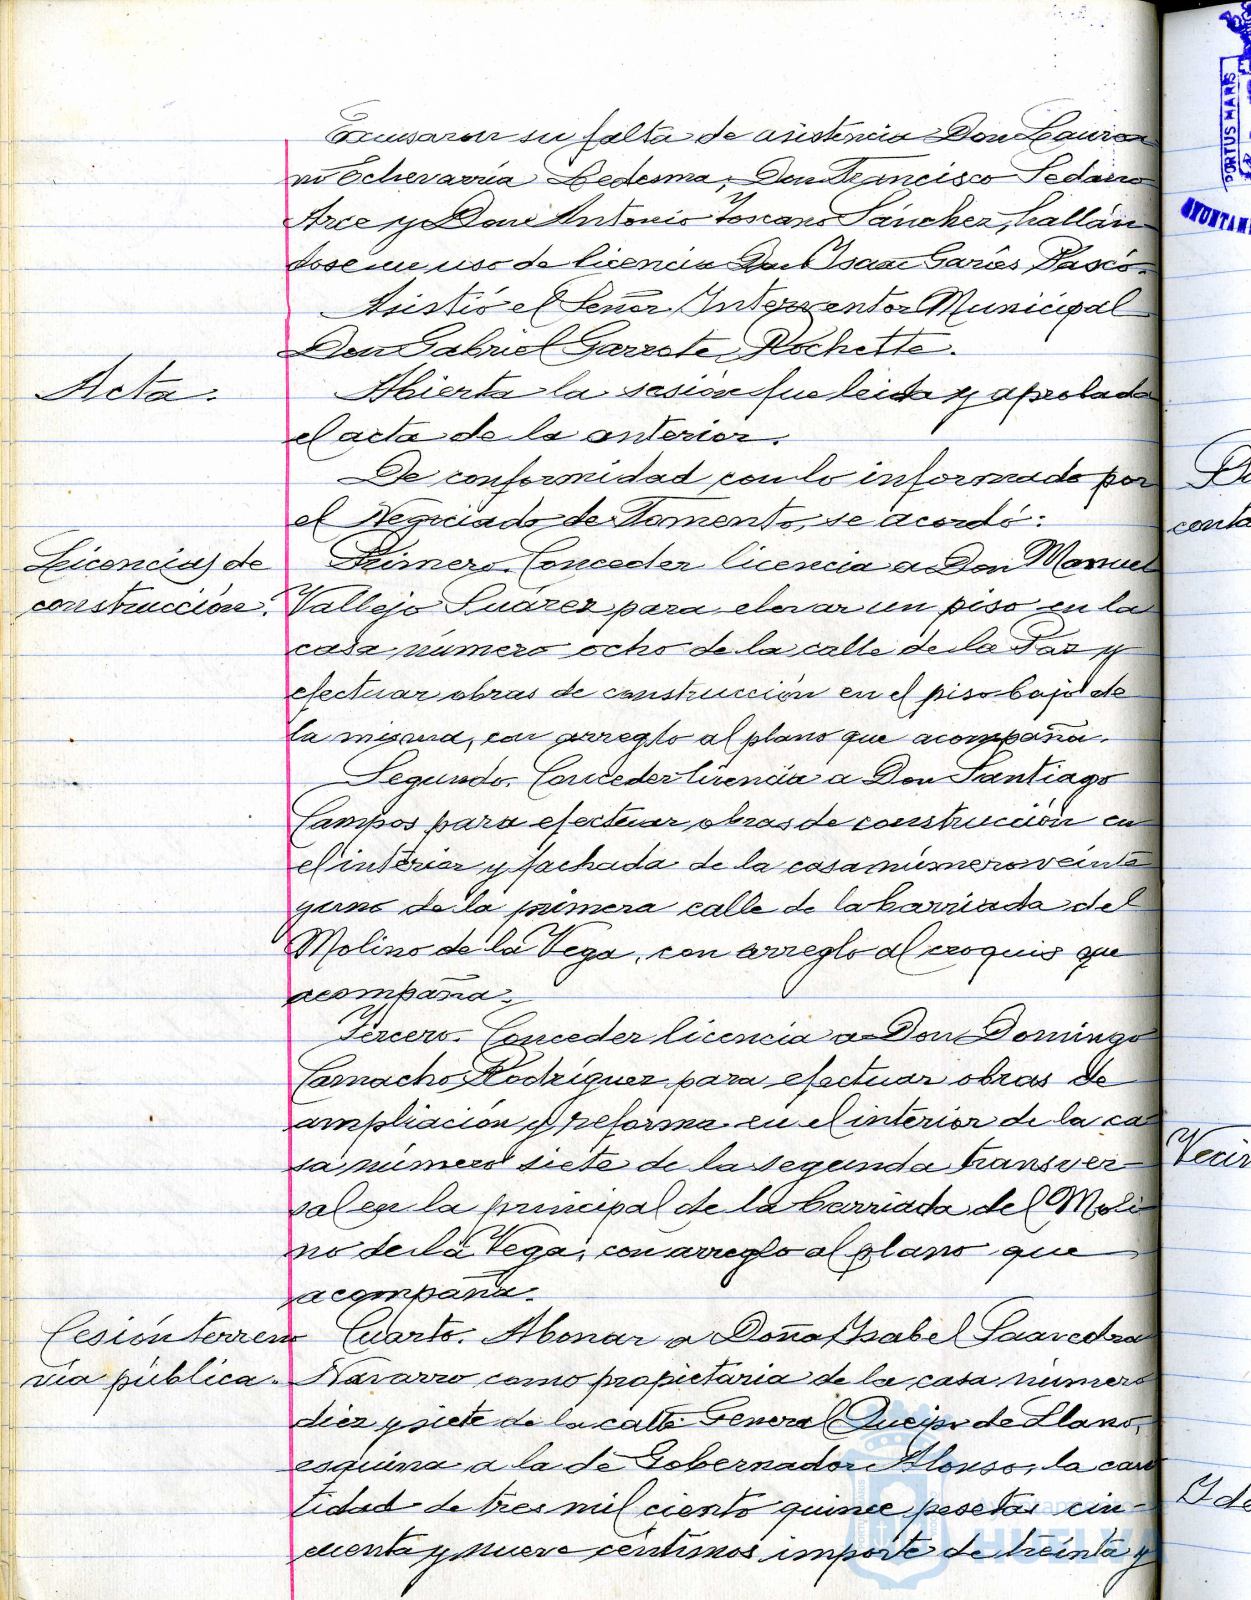 Excusaron su falta de asistencia Don Laurea
no Echevarría Ledesma, Don Francisco Sedano
Arce y Don Antonio Toscano Sánchez, hallán
dose en uso de licencia Don Isaac Garcés Pascó.
Asistió el Señor Interventor Municipal
Don Gabriel Garrote Rochette.
Acta.
Abierta la sesión fue leida y aprobada
el acta de la anterior.
De conformidad con lo informado por
el Negociado de Fomento, se acordó:
Licencias de
construcción.
Primero. Conceder licencia a Don Manuel
Vallejo Suárez para elevar un piso en la
casa número ocho de la calle de la Paz y
efectuar obras de construcción en el piso bajo de
la misma, con arreglo al plano que acompaña.
Segundo. Conceder licencia a Don Santiago
Campos para efectuar obras de construcción en
el interior y fachada de la casa número veinte
y uno de la primera calle de la barriada del
Molino de la Vega, con arreglo al croquis que
acompaña.
Tercero. Conceder licencia a Don Domingo
Camacho Rodríguez para efectuar obras de
ampliación y reforma en el interior de la ca
sa número siete de la segunda transver
sal en la principal de la barriada del Moli
no de la Vega, con arreglo al plano que
acompaña.
Cesión terreno
vía pública.
Cuarto. Abonar a Doña Isabel Saavedra
Navarro como propietaria de la casa número
diez y siete de la calle General Queipo de Llano,
esquina a la de Gobernador Alonso, la can
tidad de tres mil ciento quince pesetas cin-
cuenta y nueve céntimos importe de treinta y
PORTUS MARIS
HUELVA